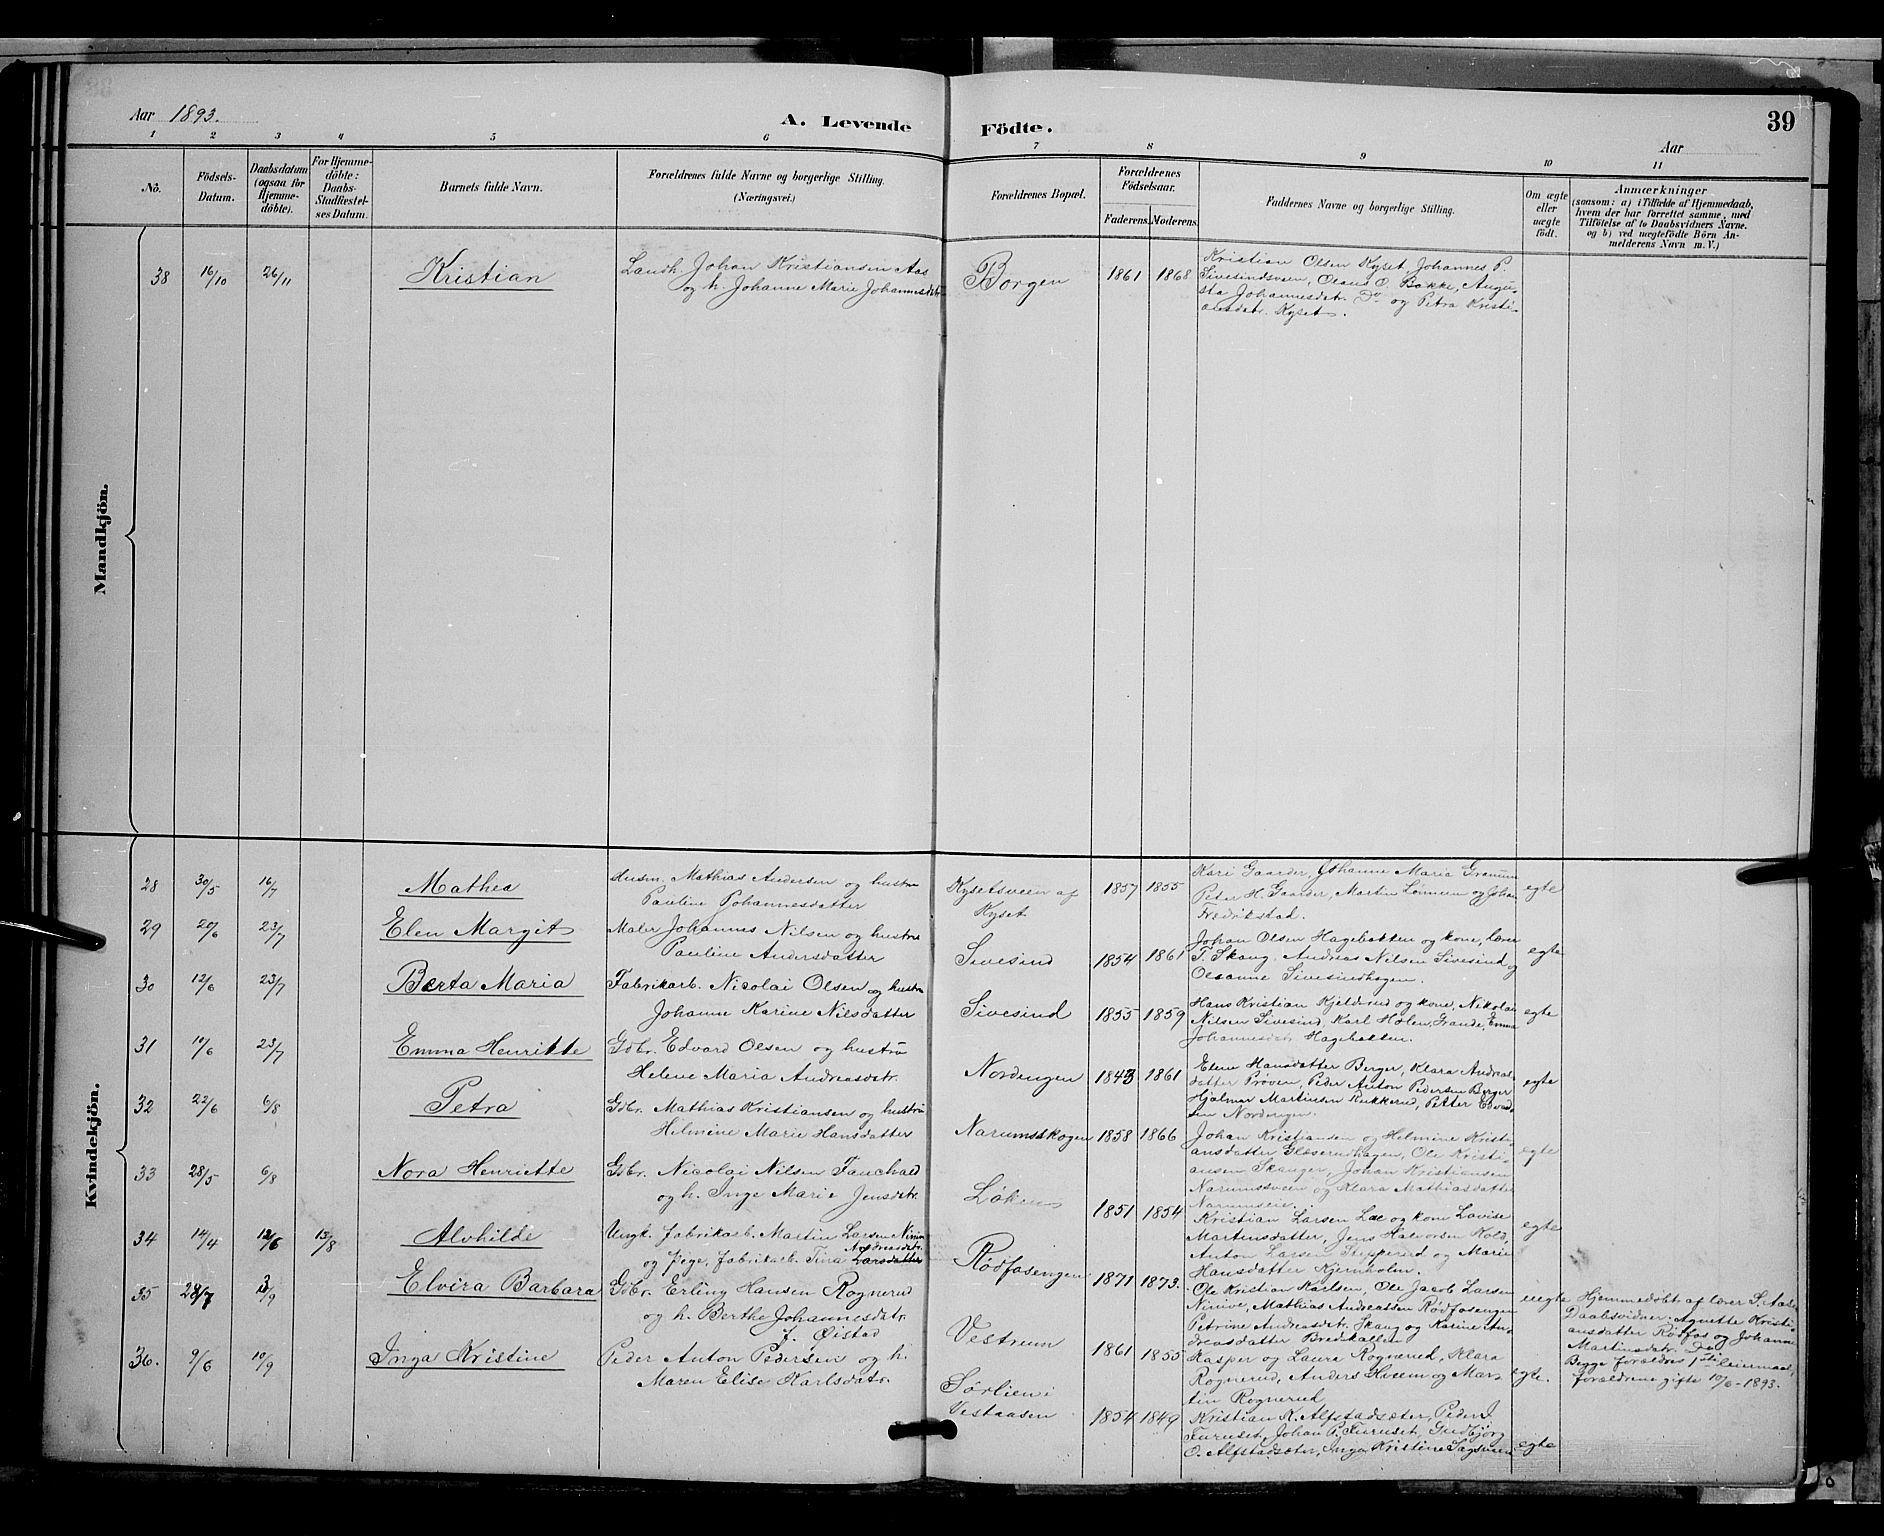 Aar 1893.
A. Levende
Födte.
39
Aar
1 2 3 4 5 6 7 8 9 10 11
No.
Födsels-
Datum.
Daabsdatum
(ogsaa for
Hjemme-
döbte).
For Hjemme-
döbte:
Daabs-
Stadfestel-
ses Datum.
Barnets fulde Navn.
Forældrenes fulde Navne og borgerlige Stilling.
(Næringsvei.)
Forældrenes Bopæl.
Forældrenes
Födselsaar.
Faderens. Moderens.
Faddernes Navne og borgerlige Stilling.
Om ægte
eller
uægte
födt.
Anmærkninger
(saasom: a) i Tilfælde af Hjemmedaab,
hvem der har forrettet samme, med
Tilföielse af to Daabsvidners Navne.
og b) ved uægtefödte Börn An-
melderens Navn m. V.)
Mandkjön.
38 16/10 26/11 Kristian
Landh. Johan Kristiansen Aas
og h. Johanne Marie Johannesdtr.
Borgen 1861 1868
Kristian Olsen Kyset, Johannes P.
Sivesindsveen, Olaus O. Bakke, Augu-
sta Johannesdtr. Do og Petra Kristi-
ansdatr. Kyset.
Kvindekjön.
28 30/5 16/7 Mathea
Husm. Mathias Andersen og hustru
Pauline Johannesdatter
Kysetsveen af
Kyset
1857 1855
Kari Gaarder, Johanne Maria
Peter H. Gaarder, Martin og Johan
Fredrikstad.
egte
29 20/6 23/7 Elen Margit
Maler Johannes Nilsen og hustru
Pauline Andersdatter
Sivesind 1854 1861
Johan Olsen Hagebakken og kone, lærer
T. Skaug, Andreas Nilsen Sivesind og
Oleanne Sivesindhagen.
egte
30 12/6 23/7 Berta Maria
Fabrikarb. Nicolai Olsen og hustru
Johanne Karine Nilsdatter
Sivesind 1855 1859
Hans Kristian Kjelderud og kone, Nikolai
Nilsen Sivesind, Karl Holen, Grande, Emma
Johannesdatr Hagebakken.
egte
31 10/6 23/7 Emma Henritte
Gdbr. Edvard Olsen og hustru
Helene Maria Andreasdtr.
Nordengen 1843 1861
Elene Hansdatter Berger, Klara Andreas-
datter Prøven, Peder Anton Pedersen Berger
Hjalmar Martinsen Rukkerud, Petter Edvard-
sen Nordengen.
egte
32 22/6 6/8 Petra
Gdbr. Mathias Kristiansen og hustru
Helmine Marie Hansdatter
Narumsskogen 1858 1866
Johan Kristiansen og Helmine Kristi-
ansdatter Glæserudhagen, Ole Kristi-
ansen Skanger, Johan Kristiansen
Narumsveen og Klara Mathiasdatter
Narumseie.
egte
33 28/5 6/8 Nora Henriette
Gdbr. Nicolai Nilsen Fauchald
og h. Inge Marie Jensdtr.
Løken 1851 1854
Kristian Larsen Lae og kone Lovise
Martinsdatter, Jens Halvorsen Kold,
Anton Larsen og Marie
Hansdatter Kjernholm.
egte
34 14/4 12/6 13/8 Alvhilde
Ungk. fabrikarb. Martin Larsen Ninive
Andreasdtr.
og pige, fabrikarb. Tina Larsdatter
Rødfosengen 1871 1873.
Ole Kristian Karlsen, Ole Jacob Larsen
Ninive, Mathias Andreassen Rødfosengen
Petrine Andreasdtr. Skaug og Karine An-
dreasdatter Bredkallen
uegte
Hjemmedøbt af lærer S. Aas.
Daabsvidner: Agnette Kristi-
ansdatter Rødfos og Johanne
Martinsdtr. Do
Begge forældres 1ste leiermaal,
forældrene gifte 10/6-1893.
35 28/7 3/9 Elvira Barbara
Gdbr. Erling Hansen Rognerud
og h. Berthe Johannesdtr.
f. Øistad
Vestrum 1861 1855
Kasper og Laura Rognerud, Klara
Rognerud, Anders Husem og Mar-
tin Rognerud
egte.
36. 9/6 10/9 Inga Kristine
Peder Anton Pedersen og h.
Maren Elise Karlsdatr.
Sørlien i
Vestaasen
1854 1849
Kristian K. Alfstadsæter, Peder J.
Furuset, Johan P. Furuset, Gudbjør
O. Alfstadsæter, Inga Kristine
egte